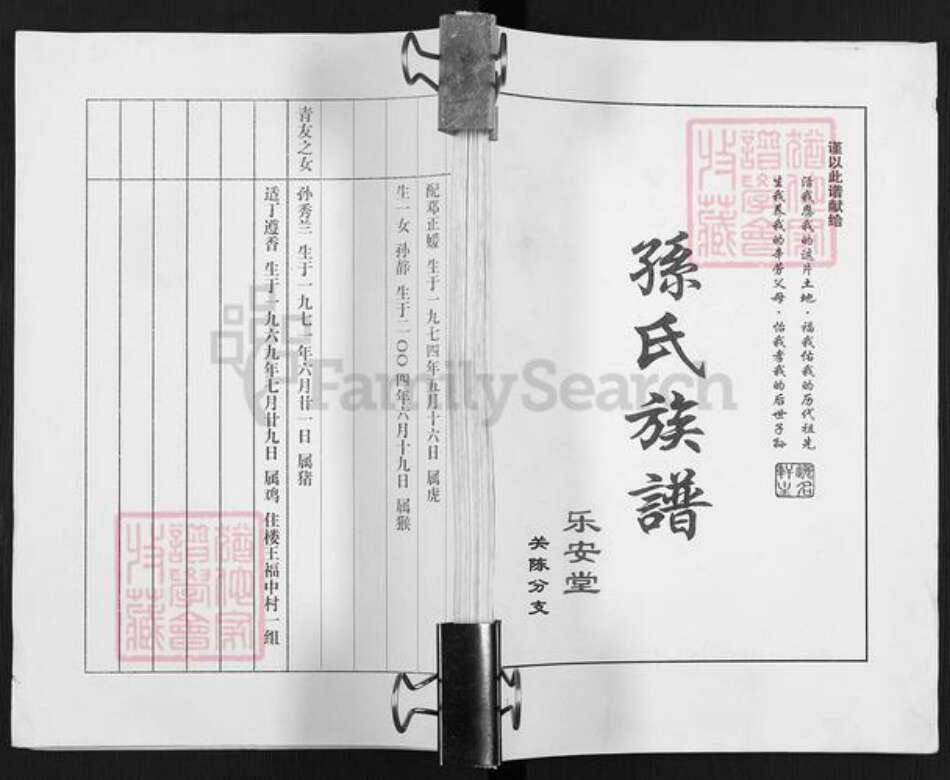 谨以此谱献给
活我恩我的这片土地·福我佑我的历代祖先
生我养我的辛劳父母·怡我孝我的后世子孙
孫氏族譜
乐安堂
关陈分支
配邓正嫒 生于一九七四年五月十六日 属虎
生一女 孙静 生于二〇〇四年六月十九日 属猴
青友之女
孙秀兰 生于一九七一年六月廿一日 属猪
适丁遵香 生于一九六九年七月廿九日 属鸡 住楼王福中村一组
FamilySearch
譜學會
收藏
譜學會
收藏